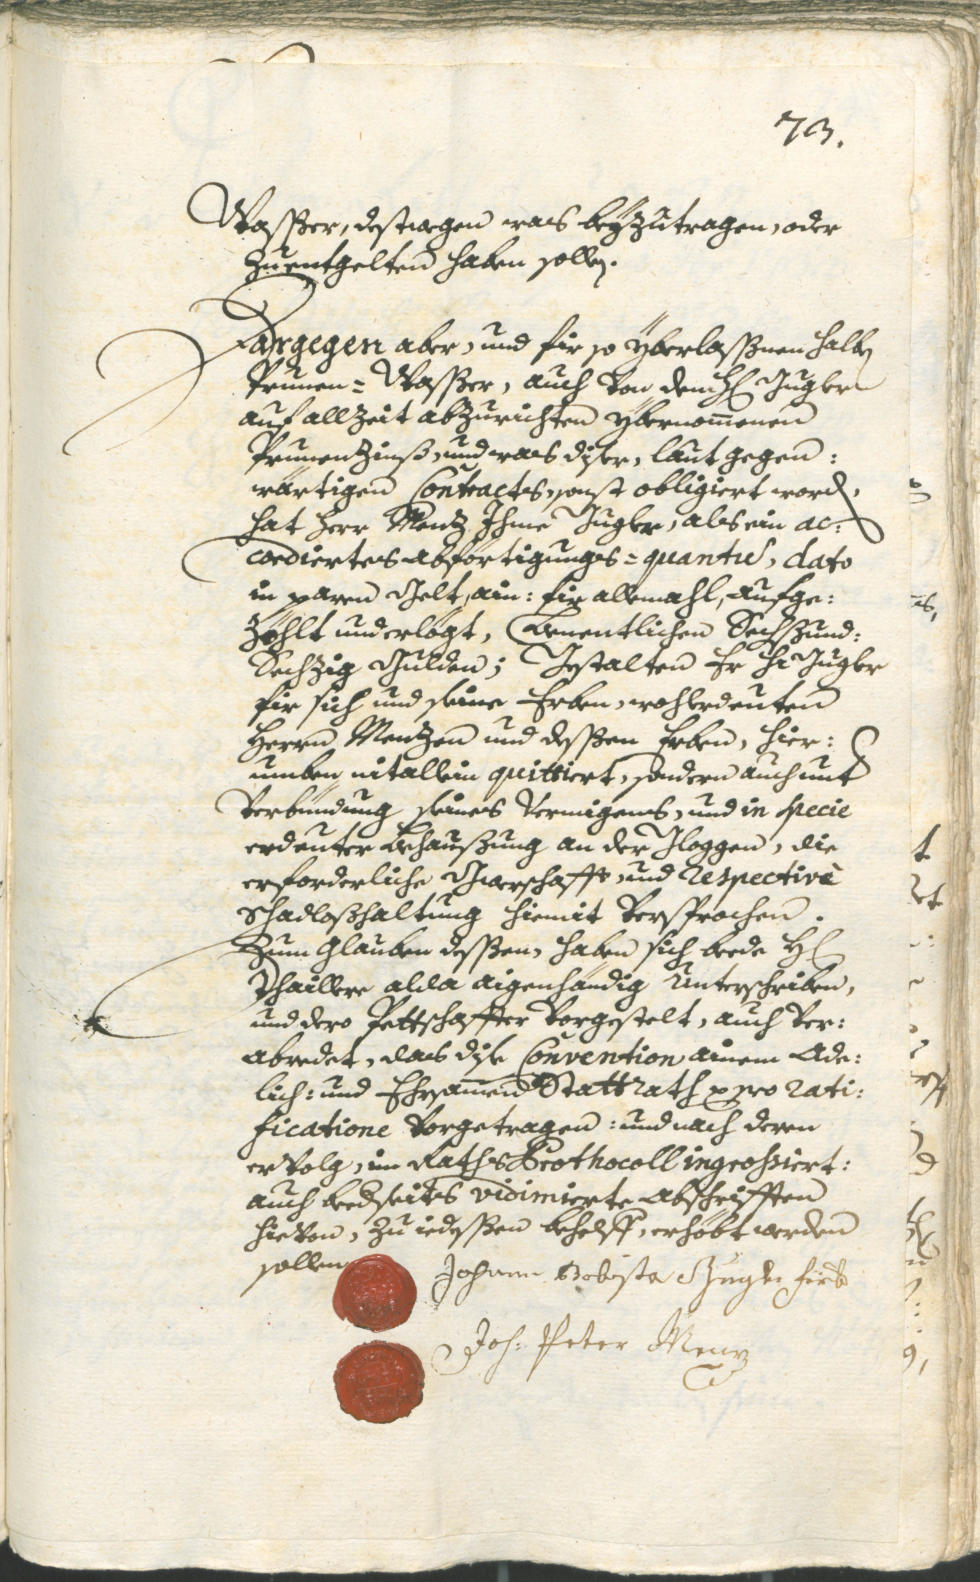 73.
Wasser, destwegen was beyzutragen, oder
zu entgelten haben sollen.
Dargegen aber, und fir so yberlassnen halben
Prunen=Wasser, auch von dem H. Jugler
auf allzeit abzurichten ybernom̅enen
Prunenzinß, und was diser, laut gegen:
wärtigen Contracts, sonst obligiert worden,
hat Herr Mentz Ihme Jugler, als ein ac:
cordiertes abförtigungs=quantu̅, dato
in paren Gelt, ain: fir allemahl, aufge:
zöhlt und erlögt, benentlichen Sechsund:
Sechzig Gulden; Gestalten Er H. Jugler
fir sich und seine Erben, wohlerdeuten
Herrn Mentzen und dessen Erben, hier:
umben nit allein quittiert, sondern auch unt
Verbündung seines Vermigens, und in specie
erdeuter Behausung an der Gloggen, die
erforderliche Gwerschafft, und respectivè
Schadloßhaltung hiemit Versprochen.
Zum Glauben dessen, haben sich beede H.
Thaillere alda aigenhändig Unterschriben,
und dero Pettschaffter Vorgestelt, auch Ver:
abredet, das dise Convention ainem Ade:
lich: und Ehrsamen Stattrath pro rati:
ficatione Vorgetragen: und nach deren
ervolg, im Raths Prothocoll ingrossiert:
auch beedseits vidimierte abschrifften
hieVon, zu iedessen behelff, erhöbt werden
sollen
Johann Bobista Jugler
Joh: Peter Menz